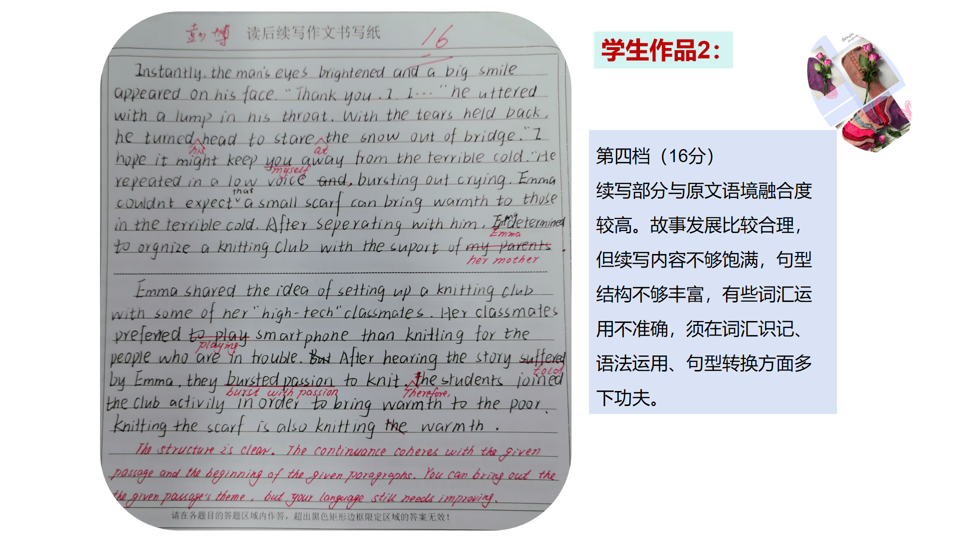 彭博 读后续写作文书写纸 16
Instantly, the man's eyes brightened and a big smile
appeared on his face. "Thank you. I. I..." he uttered
with a lump in his throat. With the tears held back,
he turned head to stare the snow out of bridge. "I
his at
hope it might keep you away from the terrible cold." He
myself
repeated in a low voice and, bursting out crying. Emma
that
couldnt expect a small scarf can bring warmth to those
in the terrible cold. After seperating with him, determined
Emma
to orgnize a knitting club with the suport of my parents.
her mother
Emma shared the idea of setting up a knitting club
with some of her "high-tech" classmates. Her classmates
preferred to play smartphone than knitling for the
playing
people who are in trouble. But After hearing the story suffered
told
by Emma, they bursted passion to knit. the students joined
burst with passion Therefore,
the club activily in order to bring warmth to the poor.
Knitting the scarf is also knitting the warmth.
The structure is clear. The continuance coheres with the given
passage and the beginning of the given paragraphs. You can bring out the
the given passage's theme, but your language still needs improving.
请在各题目的答题区域内作答，超出黑色矩形边框限定区域的答案无效！
学生作品2：
第四档（16分）
续写部分与原文语境融合度
较高。故事发展比较合理，
但续写内容不够饱满，句型
结构不够丰富，有些词汇运
用不准确，须在词汇识记、
语法运用、句型转换方面多
下功夫。